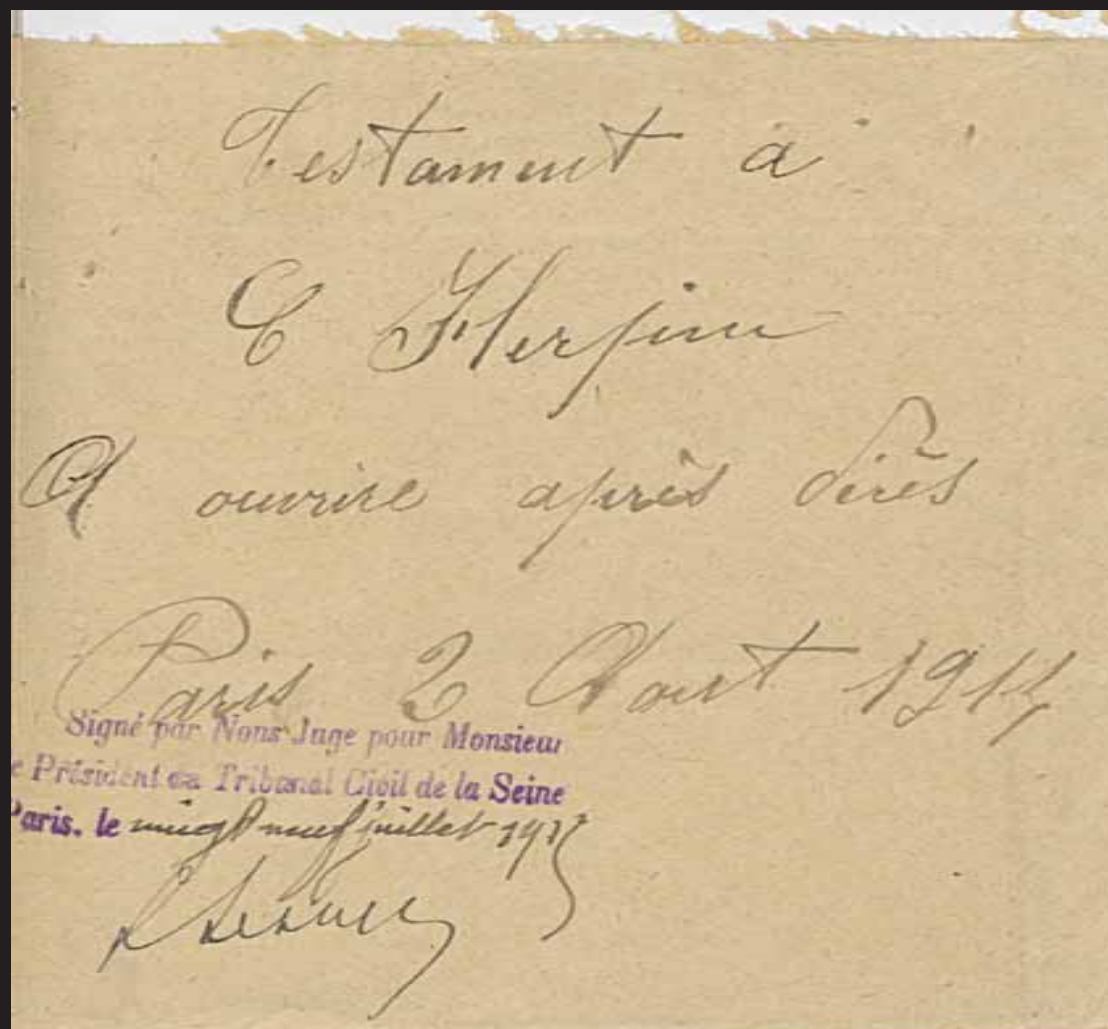 Testament à
C Herpin
A ouvrire après décès
Paris 2 Aout 1914
Signé par Nous Juge pour Monsieur
e Président du Tribunal Civil de la Seine
Paris. le vingt neuf juillet